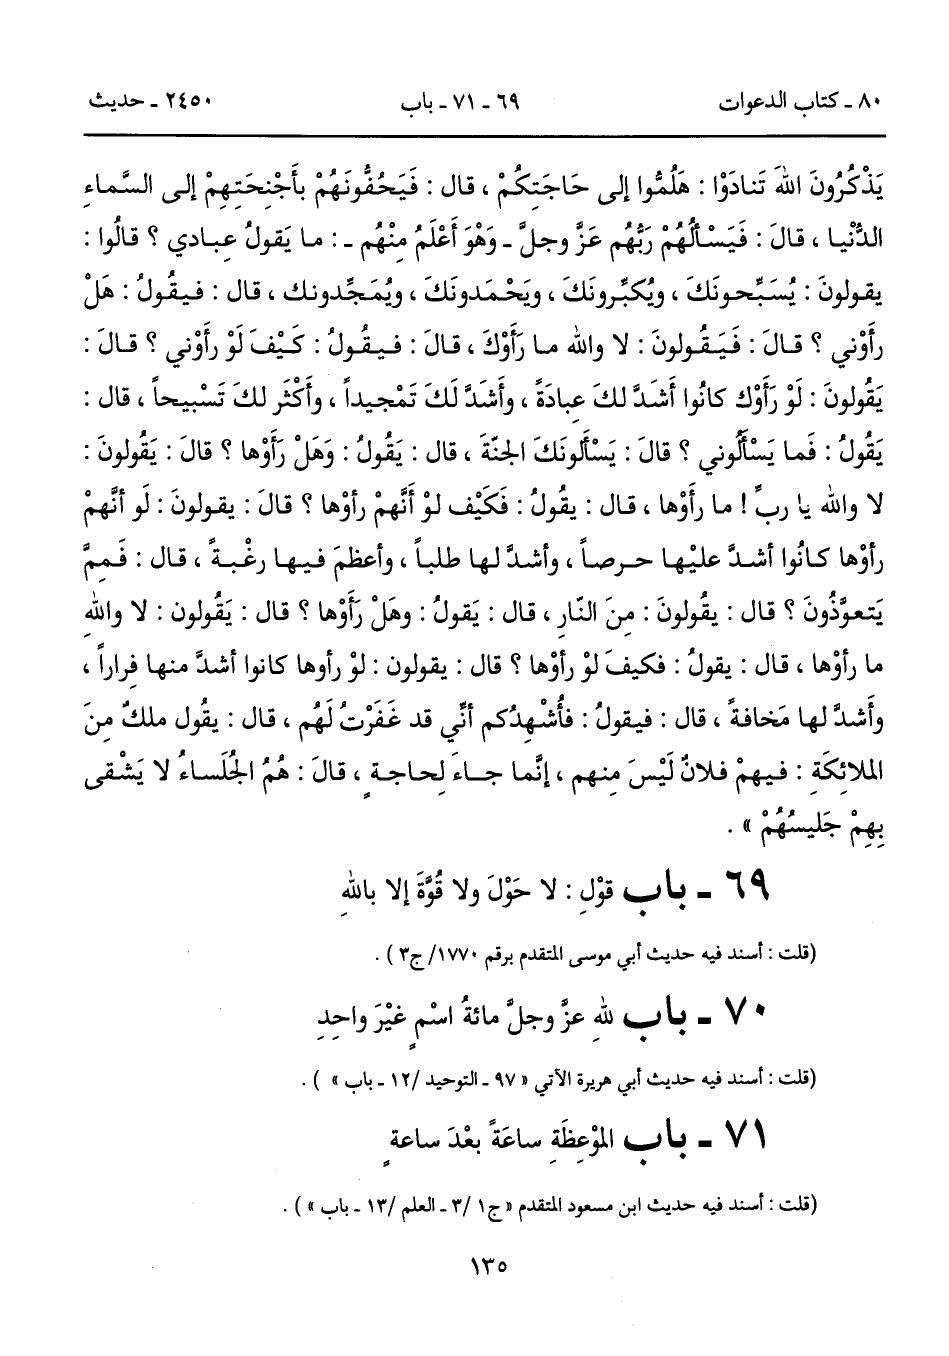 ٨٠ ـ كتاب الدعوات ٦٩ ـ ٧١ ـ باب ٢٤٥٠ ـ حديث
يَذْكُرُونَ اللهَ تَنادَوْا : هَلُمُّوا إلى حَاجَتِكُمْ ، قال : فَيَحُفُّونَهُمْ بأَجْنِحَتِهِمْ إلى السَّماءِ
الدُّنْيا ، قالَ : فَيَسْأَلُهُمْ رَبُّهُم عَزَّ وجلَّ ـ وَهْوَ أَعْلَمُ مِنْهُم ـ : ما يَقولُ عبادي ؟ قالُوا :
يقولونَ : يُسَبِّحونَكَ ، ويُكبِّرونَكَ ، ويَحْمَدونَكَ ، ويُمَجِّدونك ، قال : فيقُولُ : هَلْ
رأَوْني ؟ قالَ : فَيَقُولونَ : لا والله ما رَأَوْكَ ، قالَ : فيقُولُ : كَيْفَ لَوْ رأَوْني ؟ قالَ :
يَقُولونَ : لَوْ رَأَوْك كانُوا أَشَدَّ لكَ عِبادَةً ، وأَشَدَّ لَكَ تَمْجيداً ، وأَكْثَر لكَ تَسْبيحاً ، قال :
يَقُولُ : فَما يَسْأَلُوني ؟ قالَ : يَسْأَلونَكَ الجنَّةَ ، قال : يَقُولُ : وَهَلْ رَأَوْها ؟ قالَ : يَقُولونَ :
لا والله يا ربِّ ! ما رأَوْها ، قال : يقُولُ : فَكَيْف لوْ أَنَّهمْ رأوْها ؟ قالَ : يقولونَ : لَو أنَّهمْ
رأوْها كانُوا أشدَّ عليْها حرصاً ، وأشدَّ لها طلباً ، وأعظمَ فيها رغْبةً ، قال : فَمِمَّ
يَتعوَّذُونَ ؟ قال : يقُولونَ : مِنَ النَّارِ ، قال : يَقولُ : وهَلْ رأَوْها ؟ قال : يَقُولون : لا واللهِ
ما رأوْها ، قال : يقولُ : فكيفَ لوْ رأَوْها ؟ قال : يقولون : لوْ رأوها كانوا أشدَّ منها فِراراً ،
وأَشدَّ لها مَخافةً ، قال : فيقولُ : فأُشْهِدُكم أنِّي قد غَفَرْتُ لَهُم ، قال : يقُول ملكٌ مِنَ
الملائِكَةِ : فيهمْ فلانٌ لَيْسَ مِنهم ، إنَّما جاءَ لِحاجةٍ ، قالَ : هُمُ الجُلَساءُ لا يَشْقى
بِهِمْ جَليسُهُمْ » .
٦٩ ـ باب قوْلِ : لا حَوْلَ ولا قُوَّةَ إلا باللهِ
(قلت : أسند فيه حديث أبي موسى المتقدم برقم ١٧٧٠/ ج٣ ) .
٧٠ ـ باب للهِ عزَّ وجلَّ مائةُ اسْمٍ غيْرَ واحِدٍ
(قلت : أسند فيه حديث أبي هريرة الآتي « ٩٧ ـ التوحيد /١٢ ـ باب » ) .
٧١ ـ باب الموْعِظَةِ ساعَةً بعْدَ ساعةٍ
(قلت : أسند فيه حديث ابن مسعود المتقدم « ج١ /٣ ـ العلم /١٣ ـ باب » ) .
١٣٥